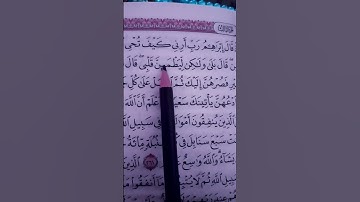 قَالَ إِبْرَٰهِـۧمُ رَبِّ أَرِنِي كَيْفَ تُحْيِ
قَالَ بَلَىٰ وَلَٰكِن لِّيَطْمَئِنَّ قَلْبِي قَالَ
فَصُرْهُنَّ إِلَيْكَ ثُمَّ عَلَىٰ كُلِّ
يَأْتِينَكَ سَعْيًا أَنَّ ٱللَّهَ
ٱلَّذِينَ يُنفِقُونَ أَمْوَٰلَهُمْ فِي سَبِيلِ
سَبْعَ سَنَابِلَ فِي سُنۢبُلَةٍ مِّائَةُ
يَشَآءُ وَٱللَّهُ وَٰسِعٌ
سَبِيلِ ٱللَّهِ ثُمَّ لَا مَآ أَنفَقُوا